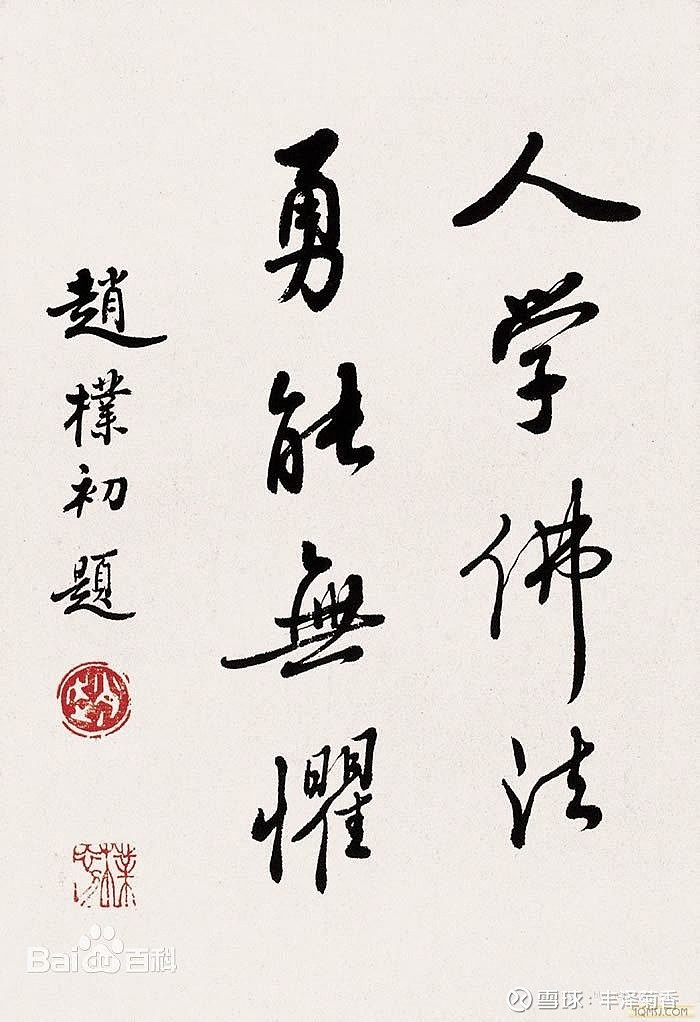 人学佛法
勇能無懼
趙樸初題
Bai百科
雪球:丰泽菊香
TQMSJ.COM